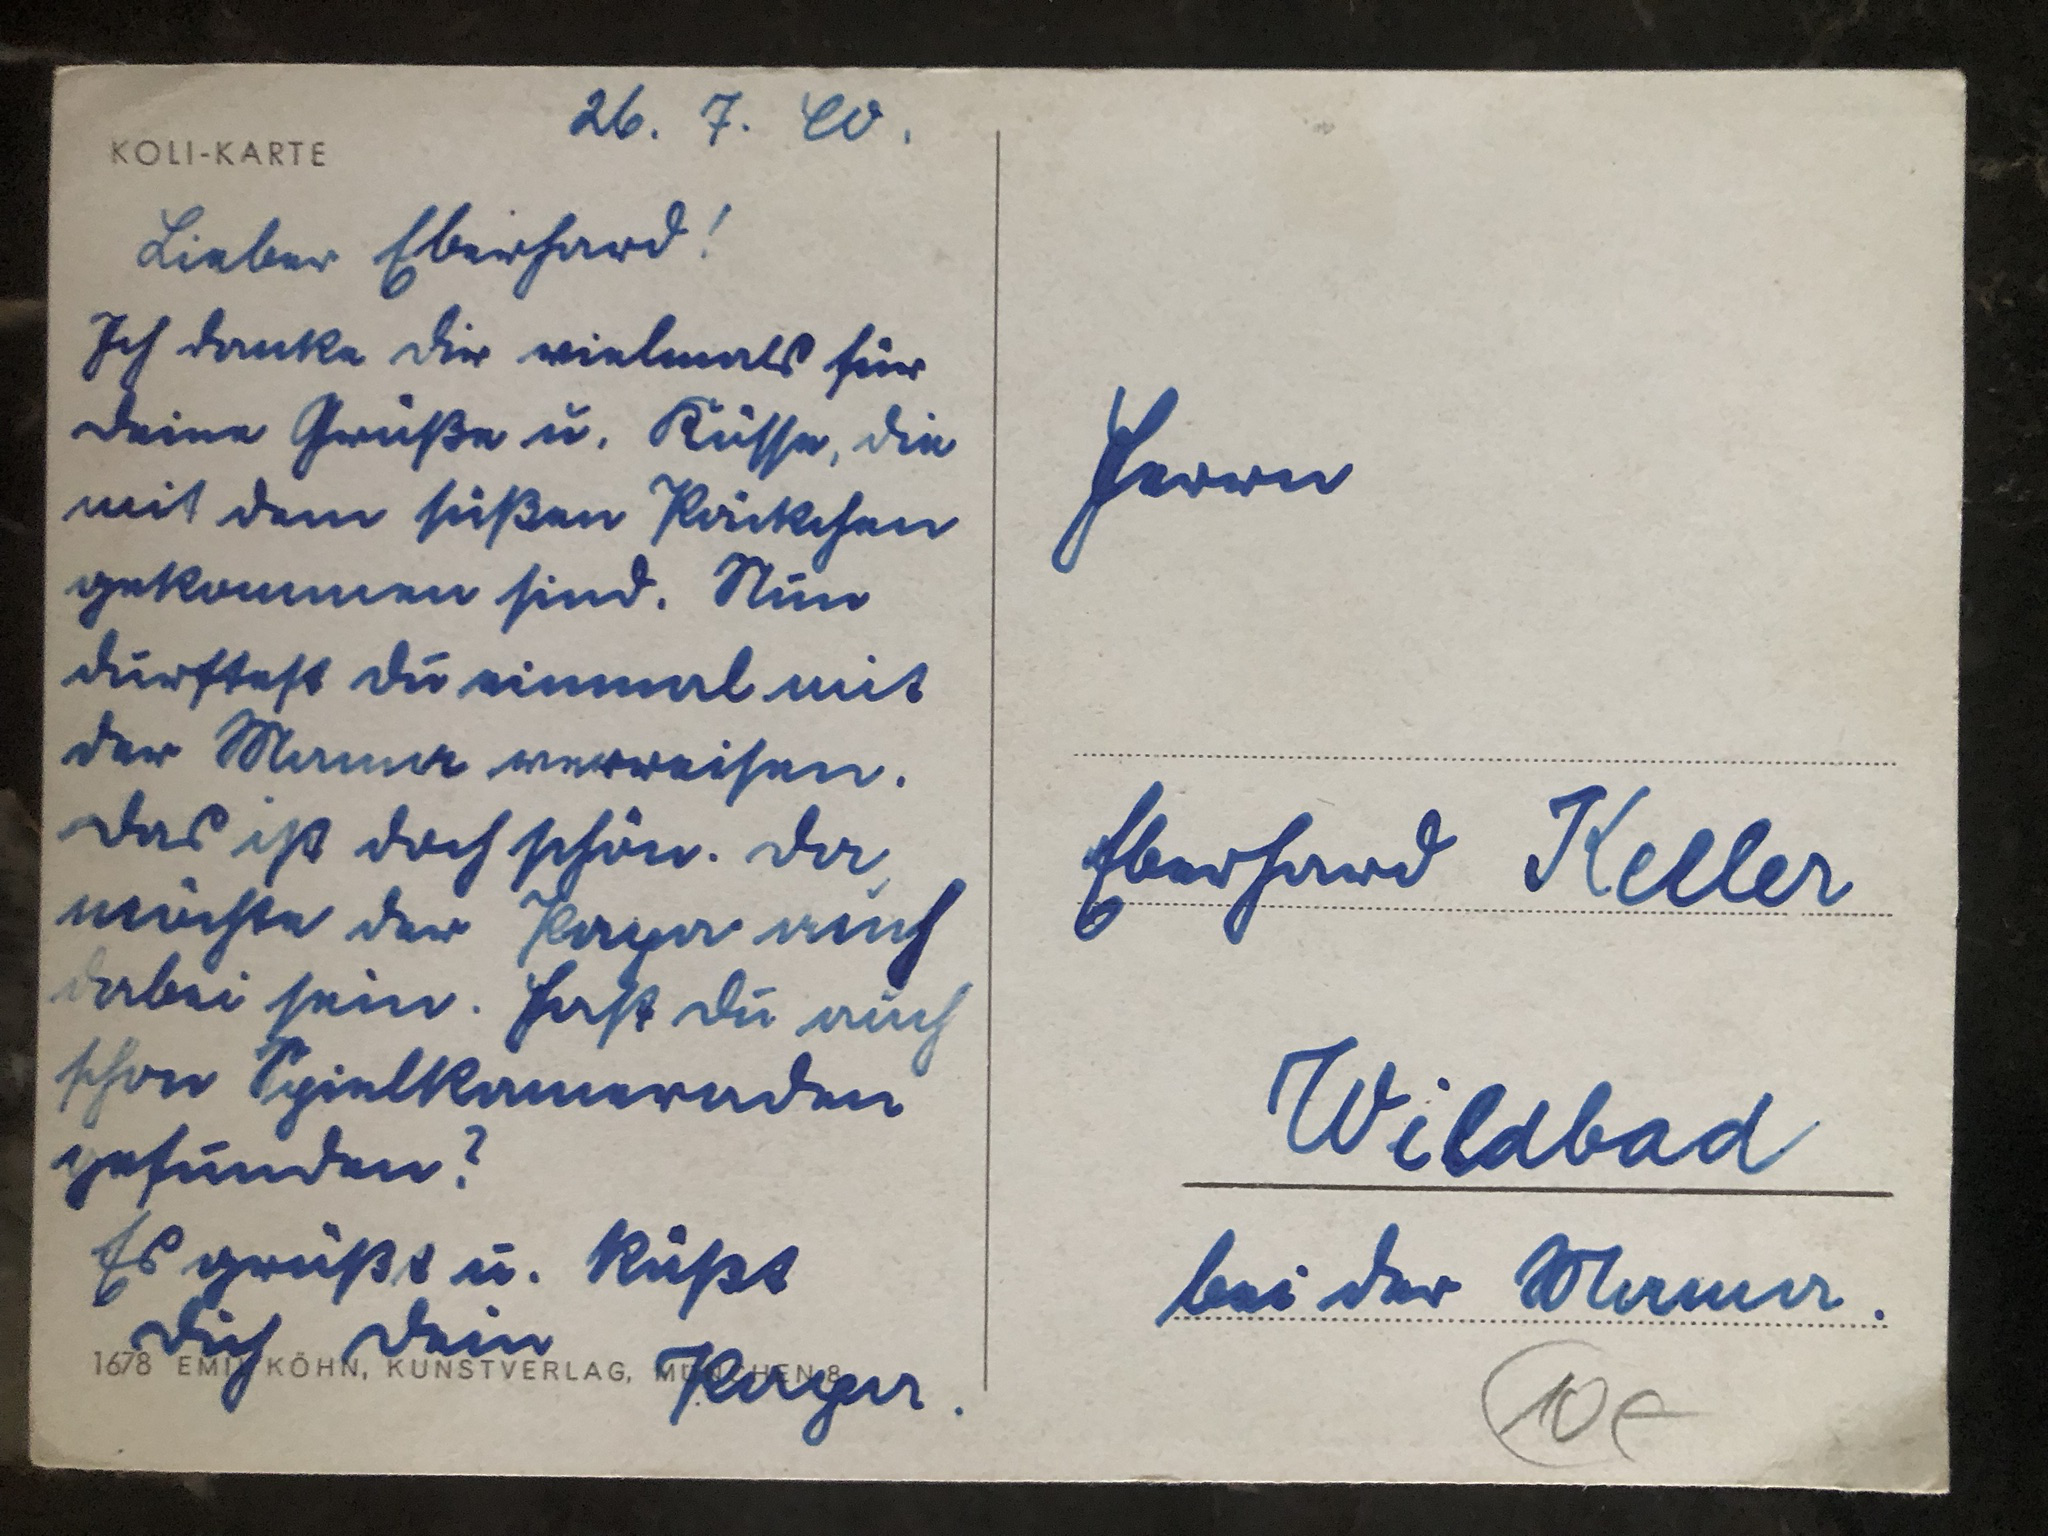 KOLI-KARTE
26. 7. 40.
Lieber Eberhard!
Ich danke dir vielmals für
deine Grüße u. Küsse, die
mit dem süßen Päckchen
gekommen sind. Nun
durftest du einmal mit
der Mama verreisen.
Das ist doch schön. Da
möchte der Papa auch
dabei sein. Hast du auch
schon Spielkameraden
gefunden?
Es grüßt u. küßt
Dich Dein
Papa.
1678 EMIL KÖHN, KUNSTVERLAG, MÜNCHEN 8
Herrn
Eberhard Keller
Wildbad
bei der Mama.
10 €